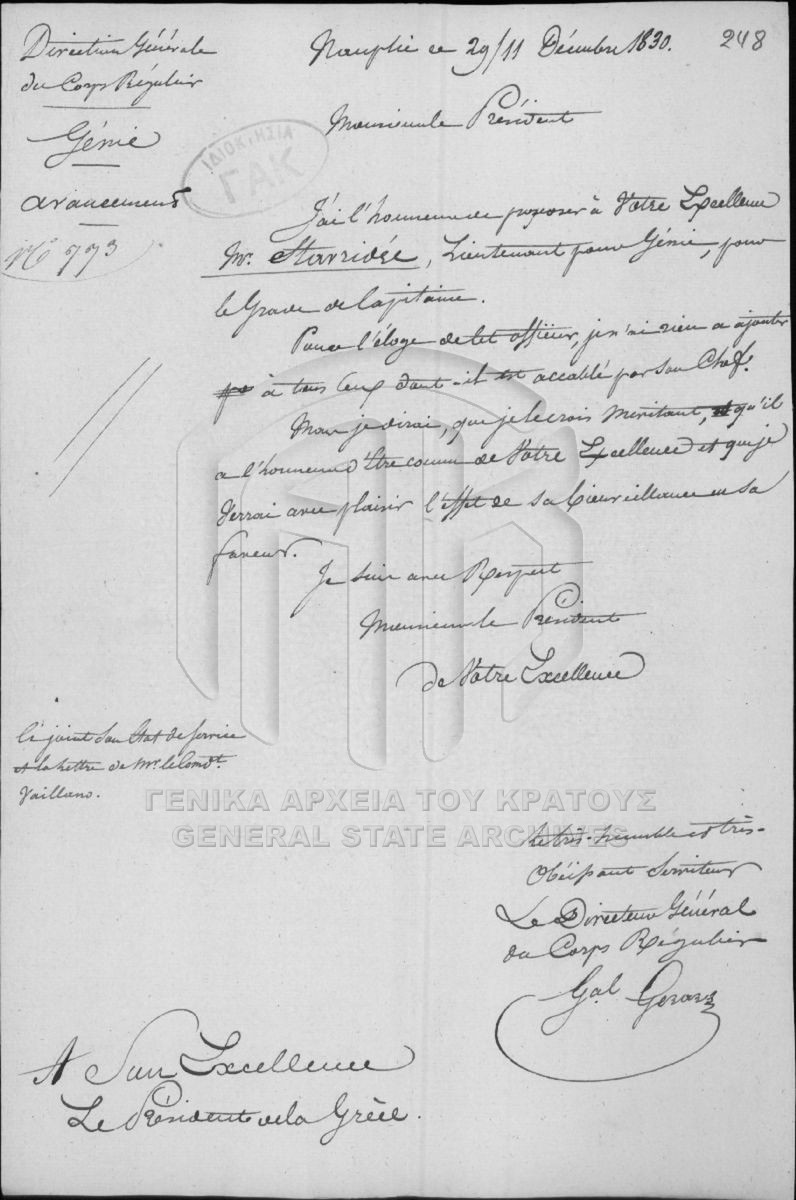 Direction Générale
du Corps Régulier
Génie
avancement
N° 773
Nauplie ce 29/11 Décembre 1830.
248
Monsieur le Président
ΙΔΙΟΚΤΗΣΙΑ
ΓΑΚ
J'ai l'honneur de proposer à Votre Excellence
Mr. Stavridée, Lieutenant pour Génie, pour
le Grade de Capitaine.
Pour l'éloge de cet officier, je n'ai rien a ajouter
à tous ceux dont il est accablé par son Chef.
Mais je dirai, que je le crois méritant, qu'il
a l'honneur d'être connu de Votre Excellence et que je
verrai avec plaisir l'effet de sa bienveillance en sa
faveur.
Je suis avec Respect
Monsieur le Président
de Votre Excellence
Ci joint son Etat de service
et la lettre de Mr. le Comdt.
Vaillant.
ΓΕΝΙΚΑ ΑΡΧΕΙΑ ΤΟΥ ΚΡΑΤΟΥΣ
GENERAL STATE ARCHIVES
Le très-humble et très-
Obéissant Serviteur
Le Directeur Général
du Corps Régulier
Gal Gerard
A Son Excellence
Le Président de la Grèce.